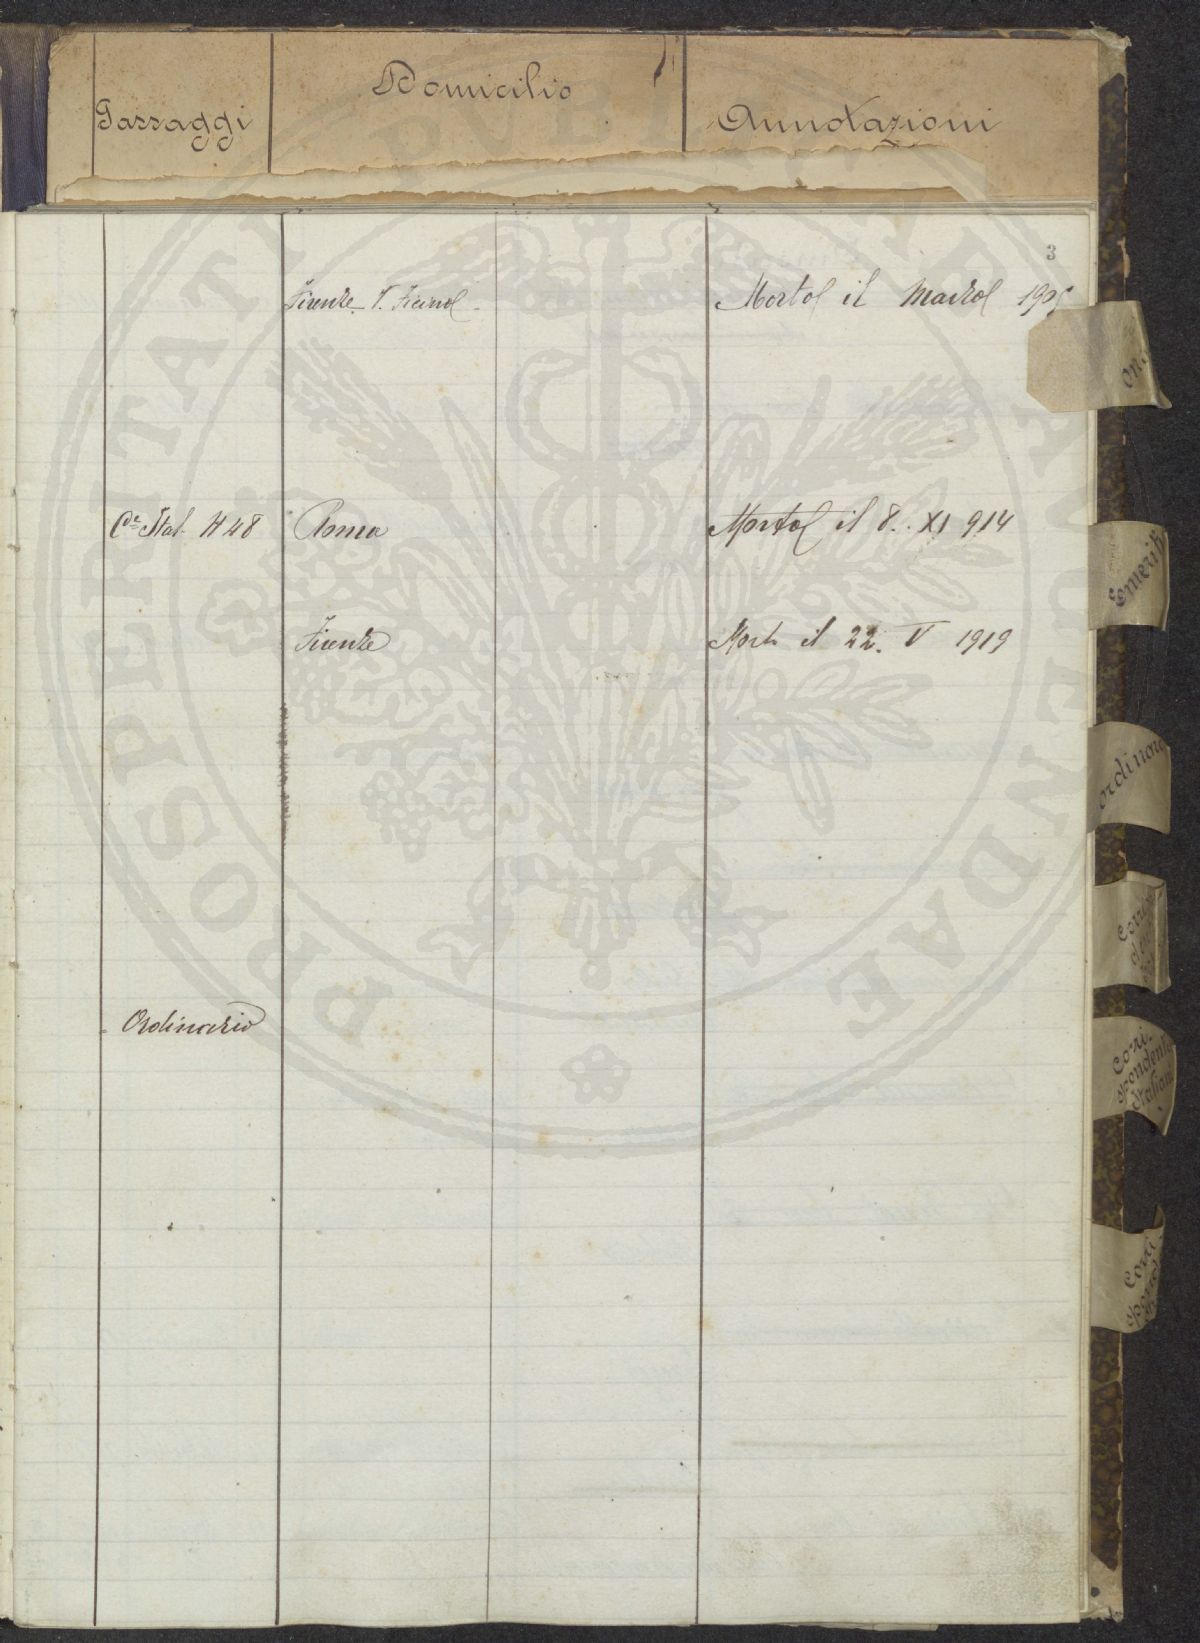 Passaggi
Domicilio
Annotazioni
3
Firenze V.
Morto il Marzo 1905
Ce Ital. N 48 Roma
Morto il 8. XI 914
Firenze
Morto il 22. V 1919
Ordinario
Emeriti
ordinari
Corri
spondenti
Italiani
Corri
PROSPERITATI PUBLICAE AUGENDAE